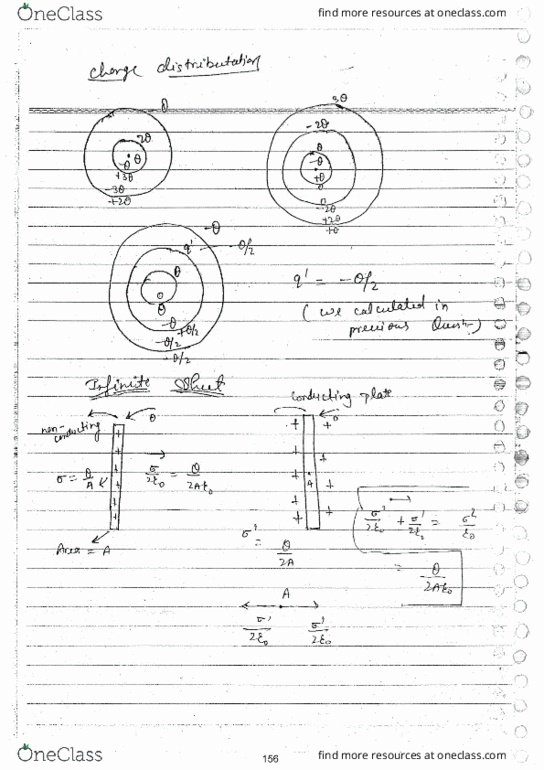 OneClass find more resources at oneclass.com
charge distributation
θ
-2θ
-θ θ
+3θ
-3θ
+2θ
3θ
-2θ
θ
-θ
+θ
0
-2θ
+2θ
+θ
-θ
q' -θ/2
θ
0
θ
-θ
+θ/2
-θ/2
-θ/2
q' = -θ/2
( we calculated in
previous Quest.)
Infinite Sheet
non-conducting
θ
σ = θ/A
σ/2ε₀ = θ/2Aε₀
Area = A
conducting plate
A
σ' = θ/2A
σ'/2ε₀ + σ'/2ε₀ = σ'/ε₀
= θ/2Aε₀
A
σ'/2ε₀ σ'/2ε₀
OneClass 156 find more resources at oneclass.com